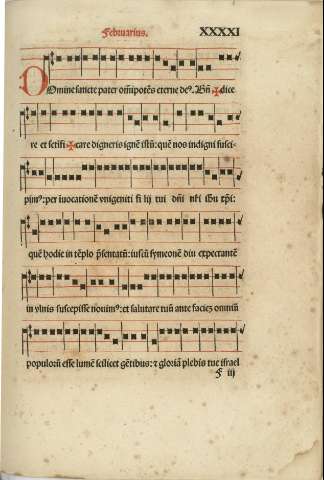 Februarius. XXXXI
Domine sancte pater om̄ipotēs eterne deꝰ. Bn̄ ✠ dice
re et sctifi ✠ care digneris ignē istū: quē nos indigni susci-
pimꝰ: per iuocationē vnigeniti fi lij tui dn̄i nr̄i ihu xp̄i:
quē hodie in tēplo p̄sentatū: iustū symeonē diu expectantē
in vlnis suscepisse nouimꝰ: et salutare tuū ante faciez omniū
populorū esse lumē scilicet gētibus: ⁊ gloriā plebis tue israel
f iij